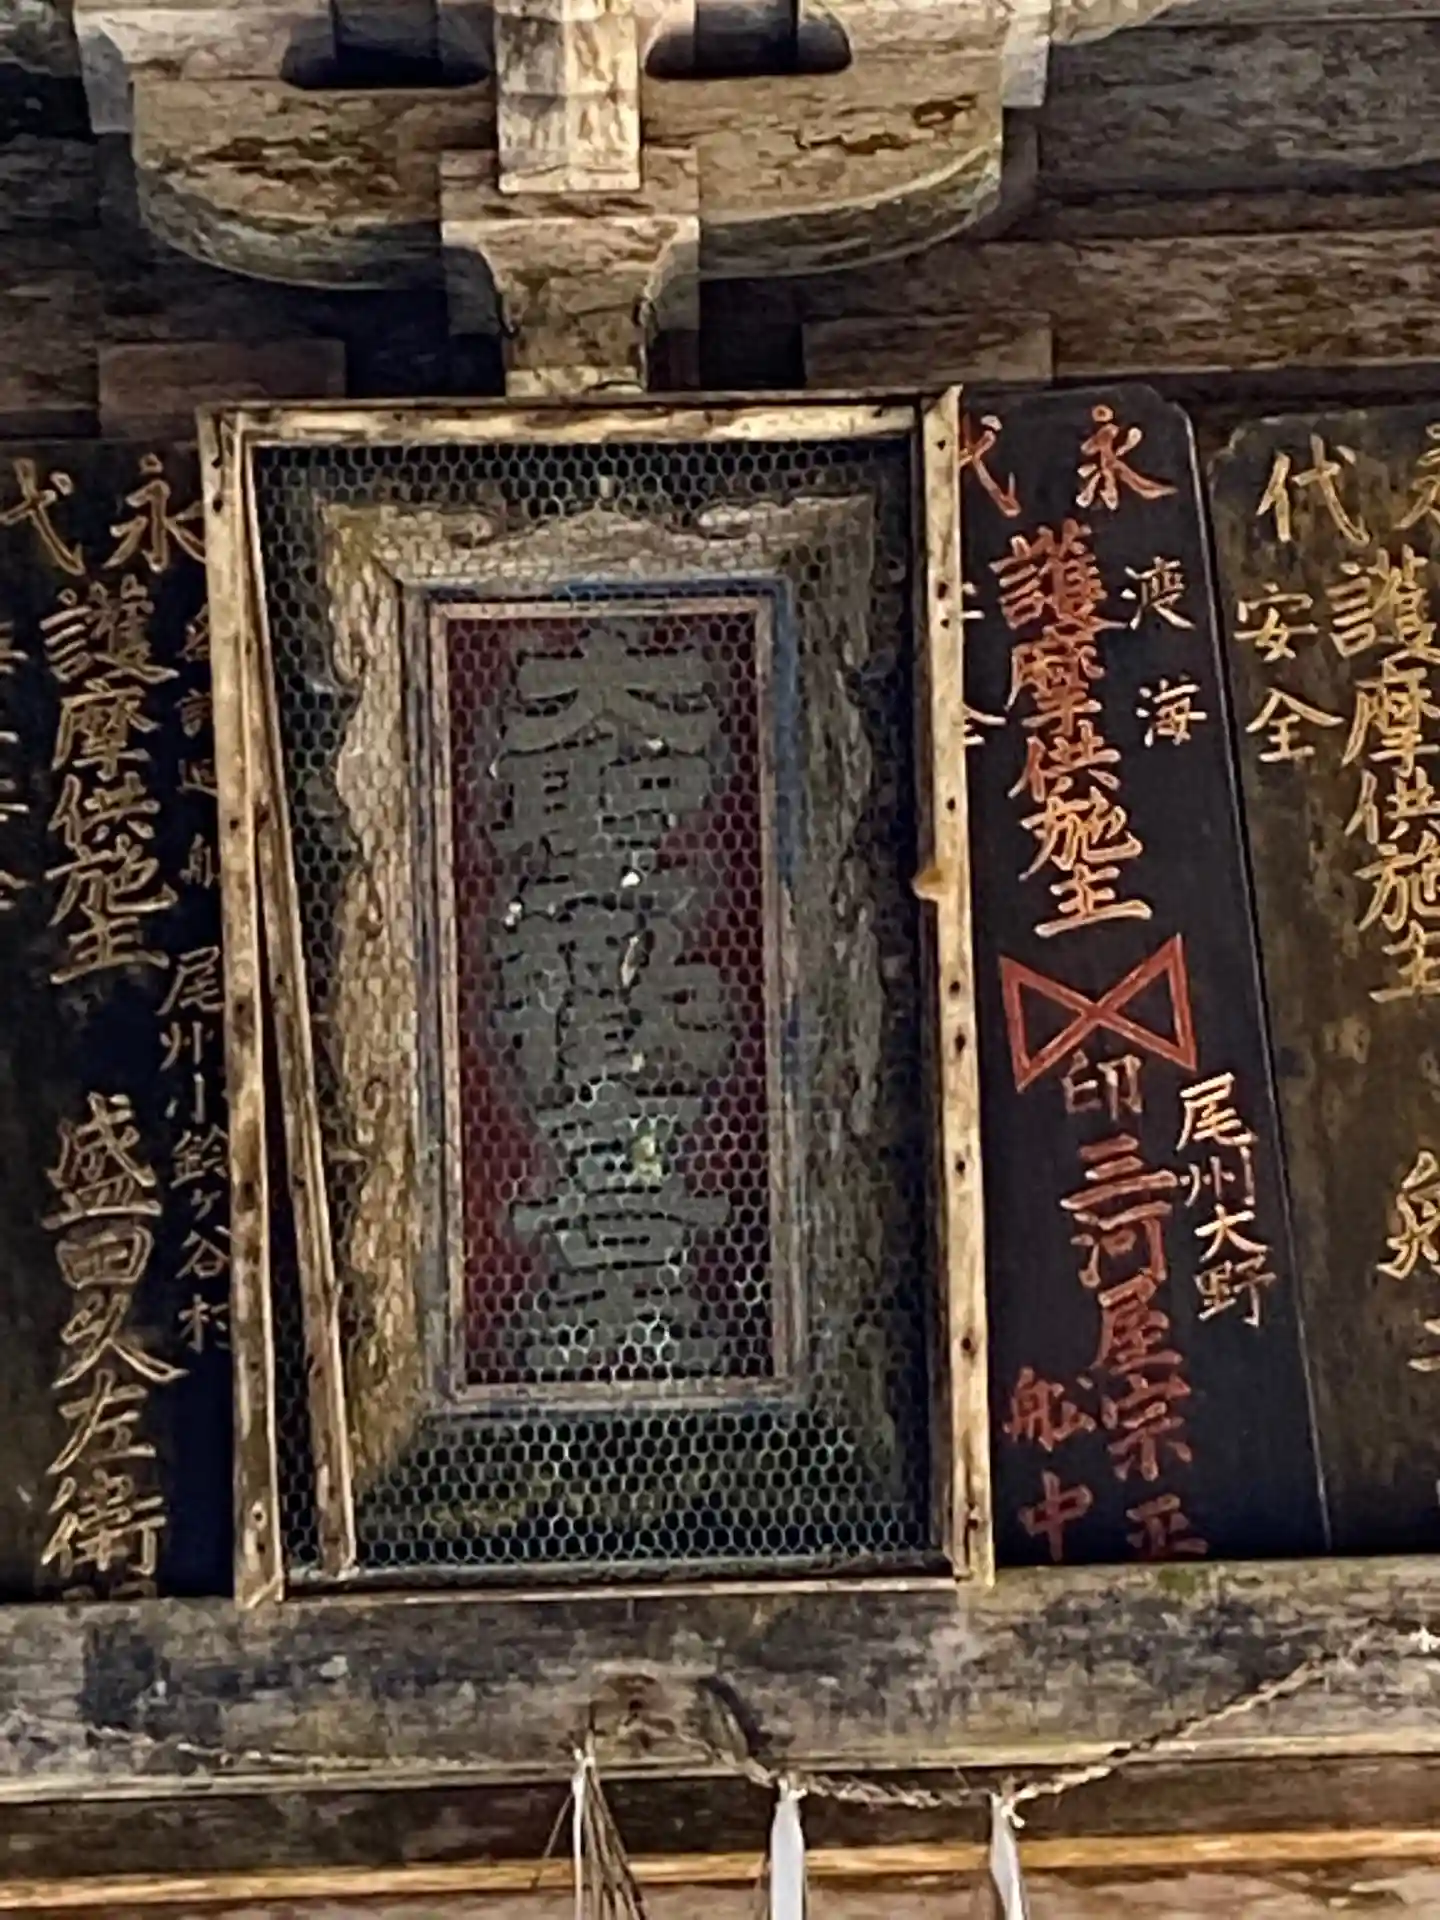 代
護摩供施主
安全
永代
渡海
護摩供施主
印
尾州大野
三河屋宗
船中
大聖歡喜
永代
護摩供施主
尾州小鈴ヶ谷村
盛田久左衛